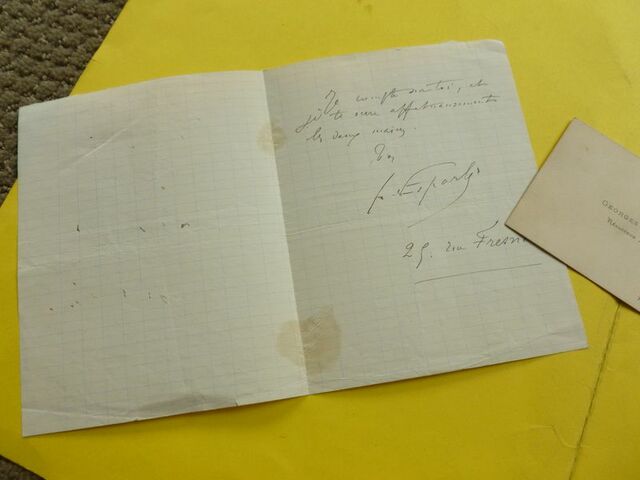 Je compte sur toi, et
je te serre affectueusement
les deux mains.
Ton
25, rue Fresn
GEORGES